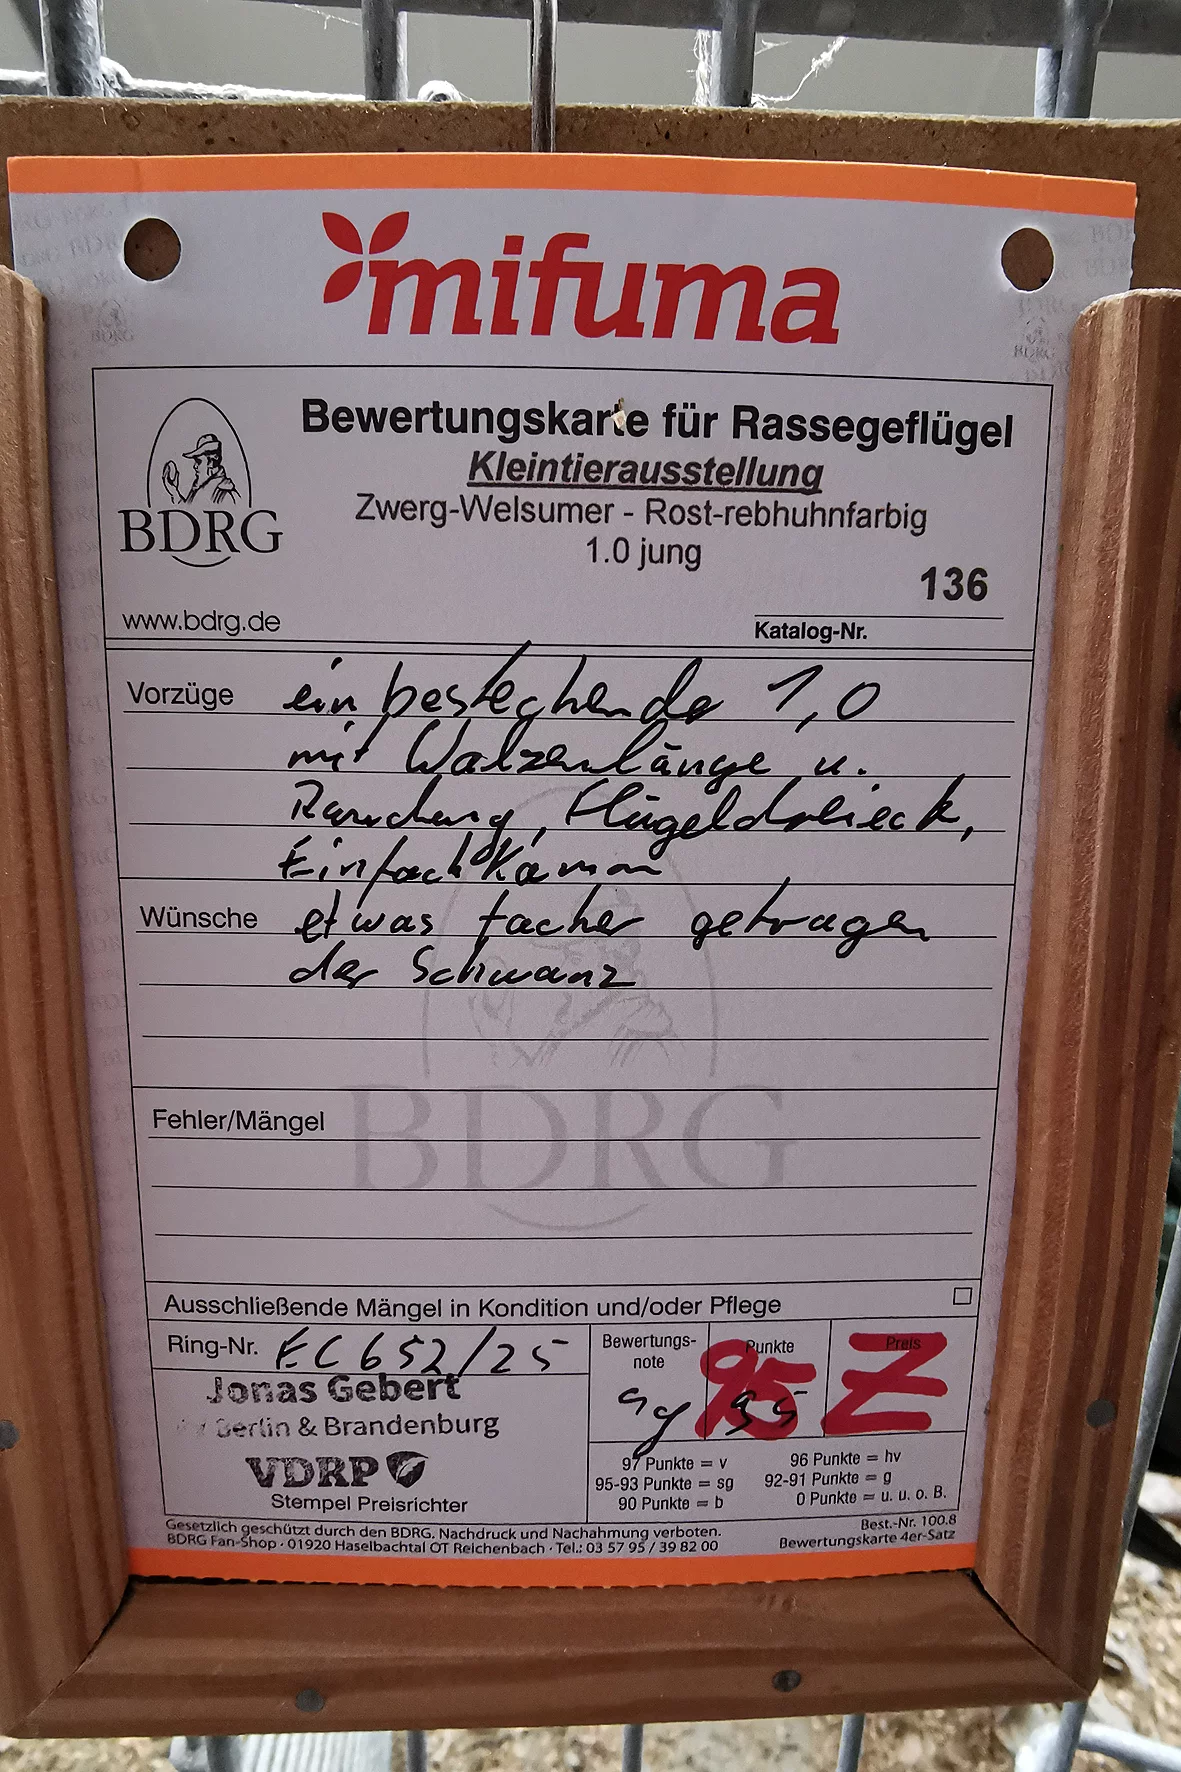 mifuma
Bewertungskarte für Rassegeflügel
Kleintierausstellung
Zwerg-Welsumer - Rost-rebhuhnfarbig
1.0 jung
BDRG
136
www.bdrg.de
Katalog-Nr.
Vorzüge ein bestechende 1,0
mit Walzenlänge u.
Flügeldreieck,
Einfachkamm
Wünsche etwas facher getragen
der Schwanz
BDRG
Fehler/Mängel
Ausschließende Mängel in Kondition und/oder Pflege
Ring-Nr. EC 652/25
Bewertungs-
note
sg
Punkte
95
95
Preis
Z
Jonas Gebert
Berlin & Brandenburg
VDRP
Stempel Preisrichter
97 Punkte = v 96 Punkte = hv
95-93 Punkte = sg 92-91 Punkte = g
90 Punkte = b 0 Punkte = u. u. o. B.
Gesetzlich geschützt durch den BDRG. Nachdruck und Nachahmung verboten.
BDRG Fan-Shop · 01920 Haselbachtal OT Reichenbach · Tel.: 03 57 95 / 39 82 00
Best.-Nr. 100.8
Bewertungskarte 4er-Satz